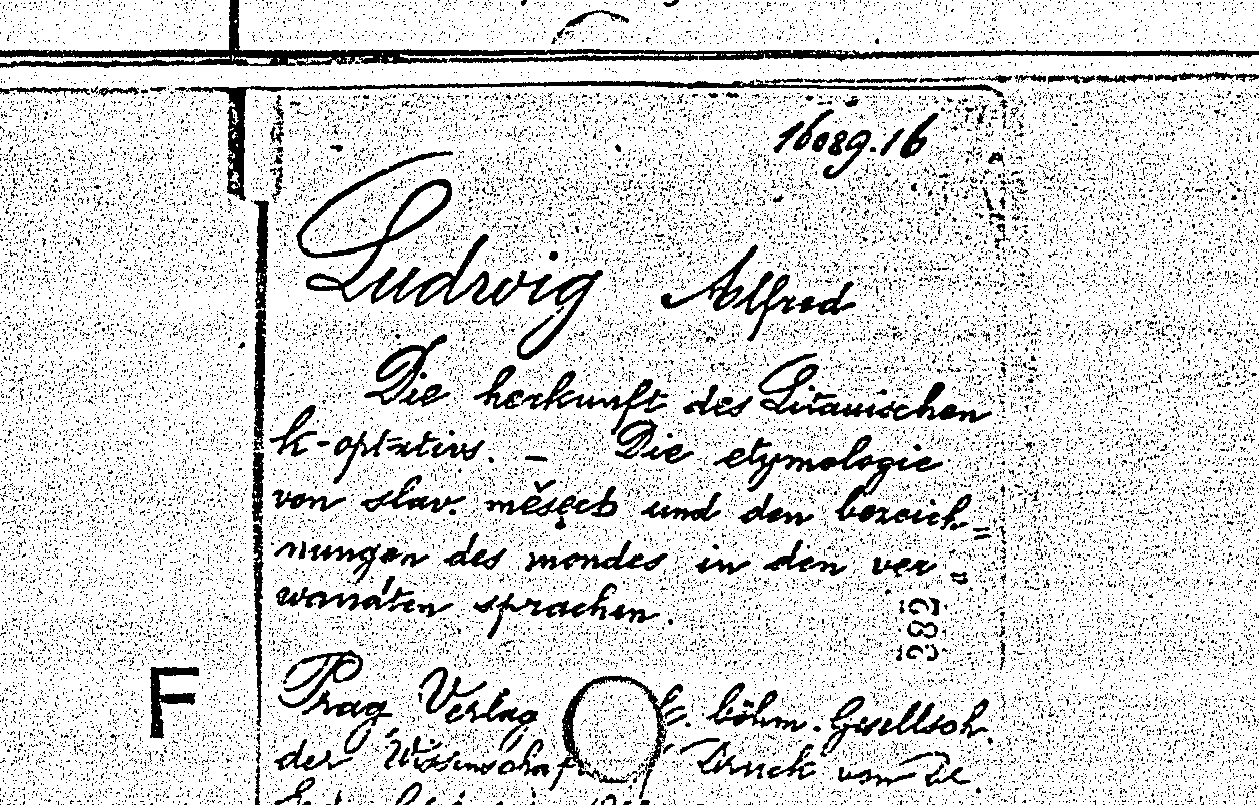 16089.16
Ludwig Alfred
Die herkunft des Litauischen
k-optativs. – Die etymologie
von slav. měsęcь und den bezeich=
nungen des mondes in den ver=
wandten sprachen.
382
F
Prag Verlag k. böhm. Gesellsch.
der Wissenschaft Druck von Dr.